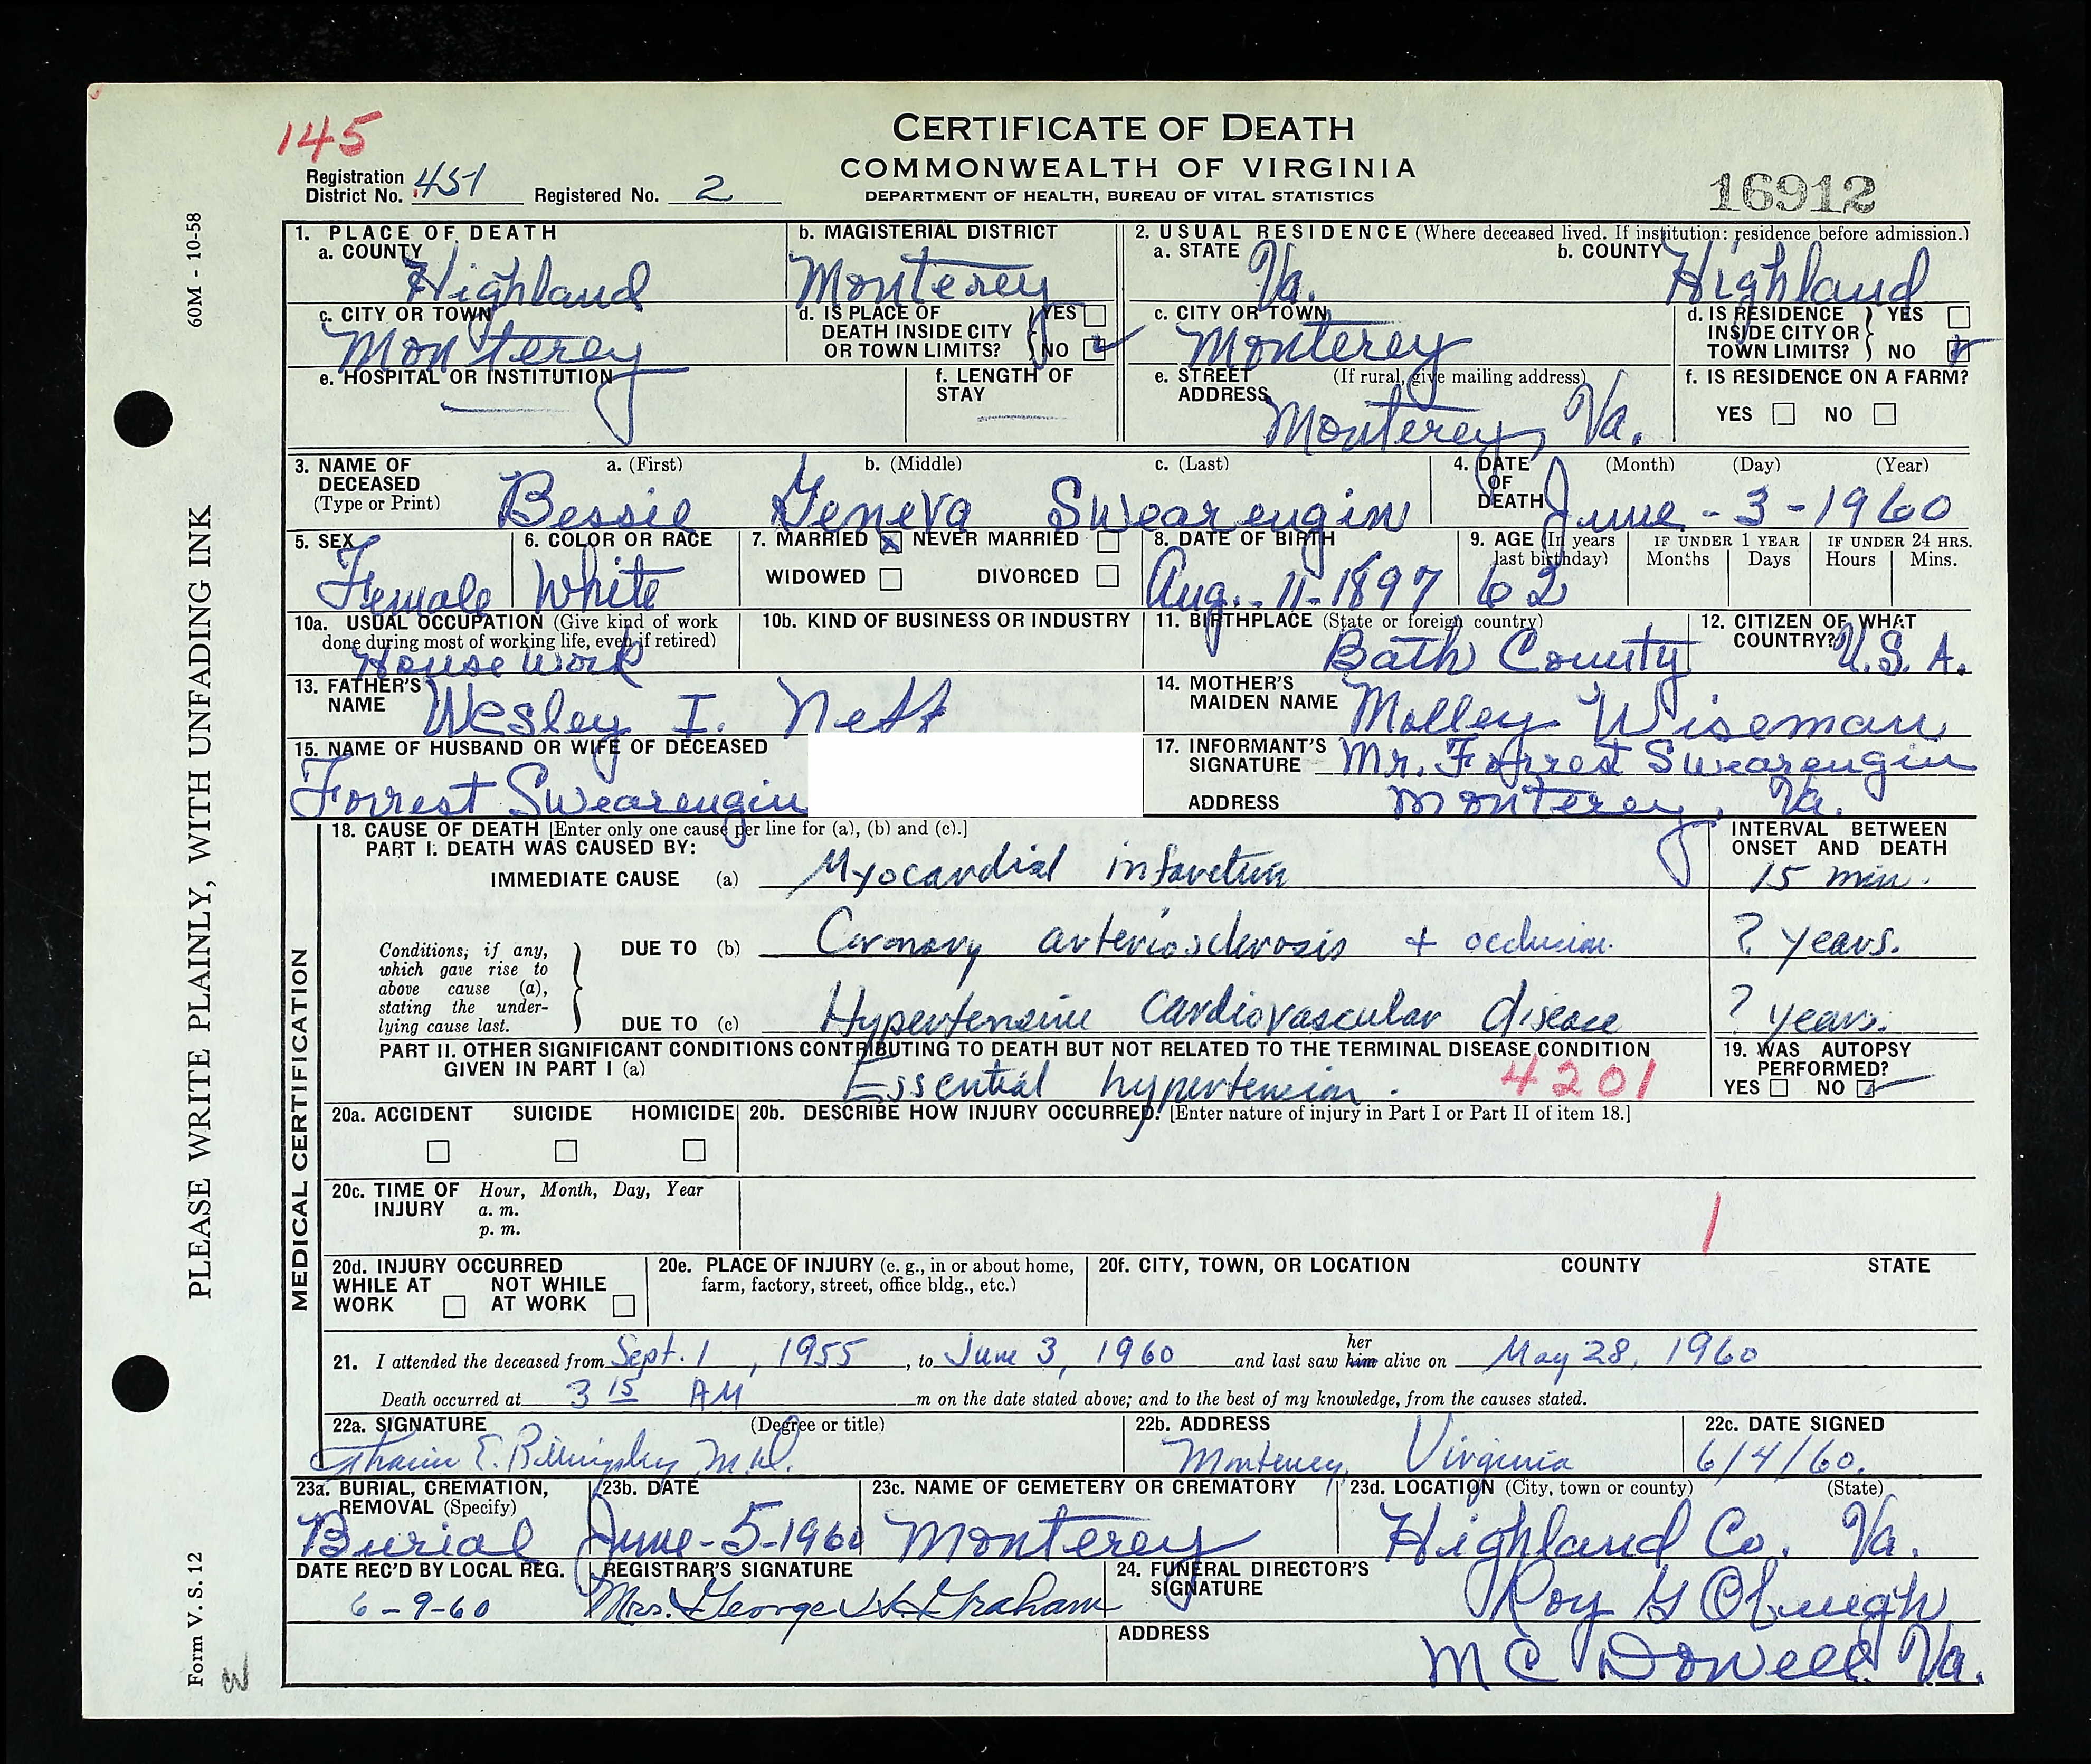 145
CERTIFICATE OF DEATH
COMMONWEALTH OF VIRGINIA
DEPARTMENT OF HEALTH, BUREAU OF VITAL STATISTICS
Registration District No. 451 Registered No. 2
16912
60M - 10-58
PLEASE WRITE PLAINLY, WITH UNFADING INK
Form V. S. 12
1. PLACE OF DEATH
a. COUNTY Highland
b. MAGISTERIAL DISTRICT Monterey
2. USUAL RESIDENCE (Where deceased lived. If institution: residence before admission.)
a. STATE Va.
b. COUNTY Highland
c. CITY OR TOWN Monterey
d. IS PLACE OF DEATH INSIDE CITY OR TOWN LIMITS? YES NO
c. CITY OR TOWN Monterey
d. IS RESIDENCE INSIDE CITY OR TOWN LIMITS? YES NO
e. HOSPITAL OR INSTITUTION
f. LENGTH OF STAY
e. STREET ADDRESS (If rural, give mailing address) Monterey, Va.
f. IS RESIDENCE ON A FARM?
YES NO
3. NAME OF DECEASED (Type or Print)
a. (First) b. (Middle) c. (Last)
Bessie Geneva Swearengin
4. DATE OF DEATH (Month) (Day) (Year)
June - 3 - 1960
5. SEX Female
6. COLOR OR RACE White
7. MARRIED NEVER MARRIED
WIDOWED DIVORCED
8. DATE OF BIRTH Aug. - 11 - 1897
9. AGE (In years last birthday) 62
IF UNDER 1 YEAR Months Days
IF UNDER 24 HRS. Hours Mins.
10a. USUAL OCCUPATION (Give kind of work done during most of working life, even if retired)
House work
10b. KIND OF BUSINESS OR INDUSTRY
11. BIRTHPLACE (State or foreign country)
Bath County
12. CITIZEN OF WHAT COUNTRY? U.S.A.
13. FATHER'S NAME Wesley I. Neff
14. MOTHER'S MAIDEN NAME Molley Wiseman
15. NAME OF HUSBAND OR WIFE OF DECEASED
Forrest Swearengin
17. INFORMANT'S SIGNATURE Mr. Forrest Swearengin
ADDRESS Monterey, Va.
MEDICAL CERTIFICATION
18. CAUSE OF DEATH [Enter only one cause per line for (a), (b) and (c).]
PART I. DEATH WAS CAUSED BY:
INTERVAL BETWEEN ONSET AND DEATH
IMMEDIATE CAUSE (a) Myocardial infarction 15 min.
Conditions, if any, which gave rise to above cause (a), stating the underlying cause last.
DUE TO (b) Coronary arteriosclerosis + occlusion. ? years.
DUE TO (c) Hypertensive cardiovascular disease ? years.
PART II. OTHER SIGNIFICANT CONDITIONS CONTRIBUTING TO DEATH BUT NOT RELATED TO THE TERMINAL DISEASE CONDITION GIVEN IN PART I (a)
Essential hypertension. 4201
19. WAS AUTOPSY PERFORMED?
YES NO
20a. ACCIDENT SUICIDE HOMICIDE
20b. DESCRIBE HOW INJURY OCCURRED. [Enter nature of injury in Part I or Part II of item 18.]
20c. TIME OF INJURY Hour, Month, Day, Year
a. m.
p. m.
1
20d. INJURY OCCURRED
WHILE AT WORK NOT WHILE AT WORK
20e. PLACE OF INJURY (e. g., in or about home, farm, factory, street, office bldg., etc.)
20f. CITY, TOWN, OR LOCATION COUNTY STATE
her
21. I attended the deceased from Sept. 1, 1955, to June 3, 1960 and last saw him alive on May 28, 1960
Death occurred at 3 15 AM m on the date stated above; and to the best of my knowledge, from the causes stated.
22a. SIGNATURE (Degree or title)
E. Billingsley M.D.
22b. ADDRESS
Monterey, Virginia
22c. DATE SIGNED
6/4/60.
23a. BURIAL, CREMATION, REMOVAL (Specify)
Burial
23b. DATE
June - 5 - 1960
23c. NAME OF CEMETERY OR CREMATORY
Monterey
23d. LOCATION (City, town or county) (State)
Highland Co. Va.
DATE REC'D BY LOCAL REG.
6-9-60
REGISTRAR'S SIGNATURE
Mrs. George H. Graham
24. FUNERAL DIRECTOR'S SIGNATURE
Roy G Obaugh
ADDRESS
McDowell Va.